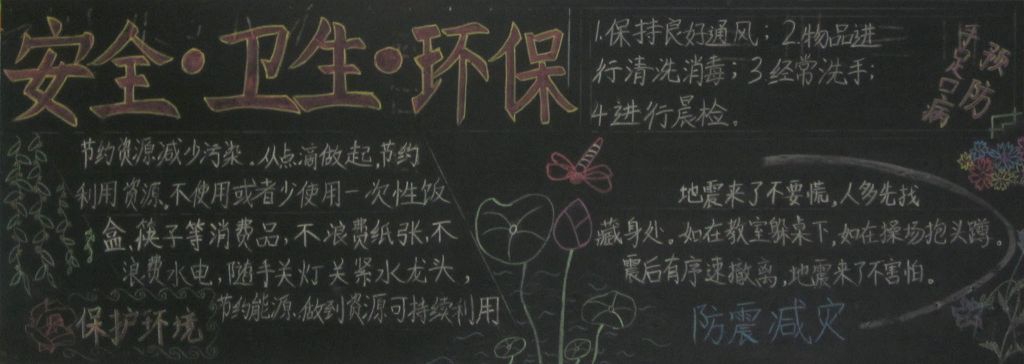 安全·卫生·环保
1.保持良好通风；2.物品进
行清洗消毒；3经常洗手；
4进行晨检。
预防
手足口病
节约资源减少污染．从点滴做起，节约
利用资源、不使用或者少使用一次性饭
盒、筷子等消费品，不浪费纸张，不
浪费水电，随手关灯关紧水龙头，
节约能源、做到资源可持续利用
保护环境
地震来了不要慌，人多先找
藏身处。如在教室躲桌下，如在操场抱头蹲。
震后有序速撤离，地震来了不害怕。
防震减灾